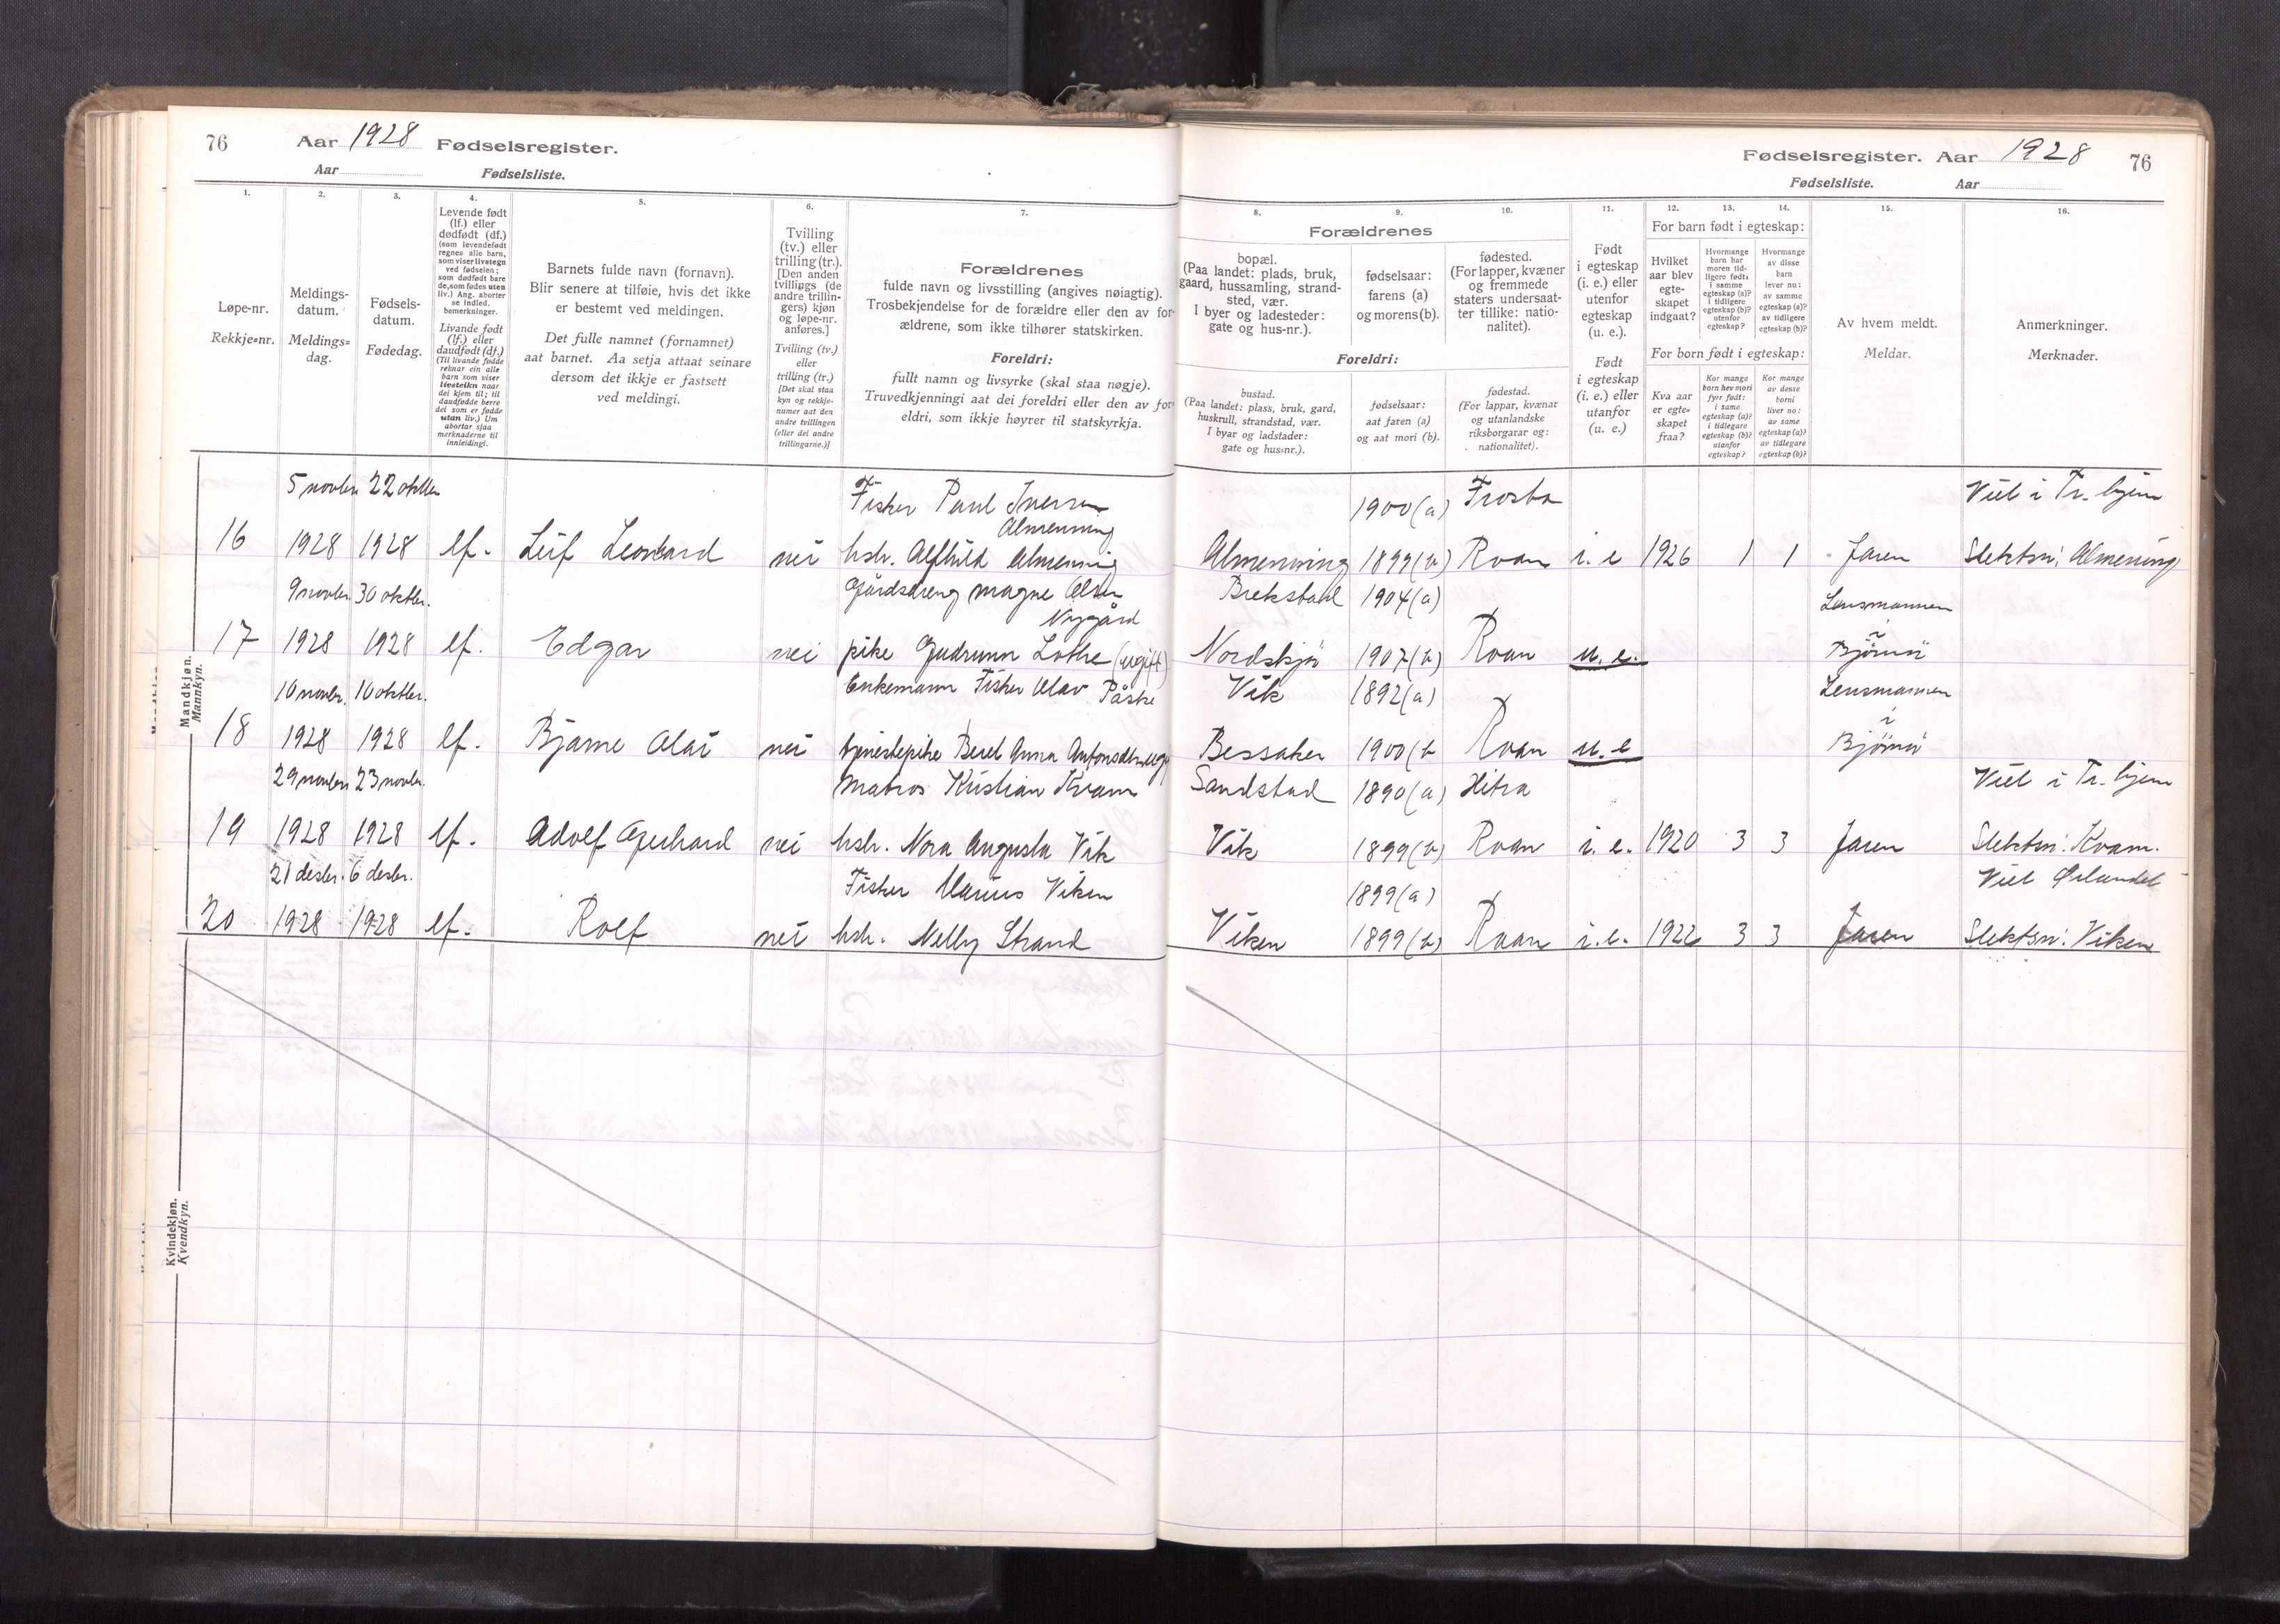 76 Aar 1928 Fødselsregister.
Aar Fødselsliste.
1. 2. 3. 4. 5. 6. 7.
Løpe-nr.
Rekkje-nr.
Meldings-
datum.
Meldings-
dag.
Fødsels-
datum.
Fødedag.
Levende født
(lf.) eller
dødfødt (df.)
(som levendefødt
regnes alle barn,
som viser livstegn
ved fødselen;
som dødfødt bare
de, som fødes uten
liv.) Ang. aborter
se indled.
bemerkninger.
Livande født
(lf.) eller
daudfødt (df.)
(Til livande fødde
reknar ein alle
barn som viser
livsteikn naar
dei kjem til; til
daudfødde berre
dei som er fødde
utan liv.) Um
abortar sjaa
merknaderne til
innleidingi.
Barnets fulde navn (fornavn).
Blir senere at tilføie, hvis det ikke
er bestemt ved meldingen.
Det fulle namnet (fornamnet)
aat barnet. Aa setja attaat seinare
dersom det ikkje er fastsett
ved meldingi.
Tvilling
(tv.) eller
trilling (tr.).
[Den anden
tvillings (de
andre trillin-
gers) kjøn
og løpe-nr.
anføres.]
Tvilling (tv.)
eller
trilling (tr.)
[Det skal staa
kyn og rekkje-
numer aat den
andre tvillingen
(eller dei andre
trillingarne.)]
Forældrenes
fulde navn og livsstilling (angives nøiagtig).
Trosbekjendelse for de forældre eller den av for-
ældrene, som ikke tilhører statskirken.
Foreldri:
fullt namn og livsyrke (skal staa nøgje).
Truvedkjenningi aat dei foreldri eller den av for-
eldri, som ikkje høyrer til statskyrkja.
Mandkjøn.
Mannkyn.
5 novbr. 22 oktbr. Fisker Paul Iversen
Almenning
16 1928 1928 lf. Leif Leonhard nei hstr. Alfhild Almenning
9 novbr. 30 oktbr. Gårdsdreng Magne Olsen
Nygård
17 1928 1928 lf. Edgar nei pike Gudrunn Lothe (ugift)
10 novbr. 10 oktbr. Enkemann Fisker Olav Påske
18 1928 1928 lf. Bjarne Olai nei tjenestepike Beret Anna
29 novbr. 23 novbr. Matros Kristian Kvam
19 1928 1928 lf. Adolf Gerhard nei hstr. Nora Augusta Vik
21 desbr. 6 desbr. Fisker Marius Viken
20 1928 1928 lf. Rolf nei hstr. Nelly Strand
Kvindekjøn.
Kvendkyn.
Fødselsregister. Aar 1928 76
Fødselsliste. Aar
8. 9. 10. 11. 12. 13. 14. 15. 16.
Forældrenes
bopæl.
(Paa landet: plads, bruk,
gaard, hussamling, strand-
sted, vær.
I byer og ladesteder:
gate og hus-nr.).
fødselsaar:
farens (a)
og morens (b).
fødested.
(For lapper, kvæner
og fremmede
staters undersaat-
ter tillike: natio-
nalitet).
Foreldri:
bustad.
(Paa landet: plass, bruk, gard,
huskrull, strandstad, vær.
I byar og ladstader:
gate og hus-nr.).
fødselsaar:
aat faren (a)
og aat mori (b).
fødestad.
(For lappar, kvænar
og utanlandske
riksborgarar og:
nationalitet).
Født
i egteskap
(i. e.) eller
utenfor
egteskap
(u. e.).
Født
i egteskap
(i. e.) eller
utanfor
(u. e.)
For barn født i egteskap:
Hvilket
aar blev
egte-
skapet
indgaat?
Hvormange
barn har
moren tid-
ligere født:
i samme
egteskap (a)?
i tidligere
egteskap (b)?
utenfor
egteskap?
Hvormange
av disse
barn
lever nu:
av samme
egteskap (a)?
av tidligere
egteskap (b)?
For born født i egteskap:
Kva aar
er egte-
skapet
fraa?
Kor mange
born hev mori
fyrr født:
i same
egteskap (a)?
i tidlegare
egteskap (b)?
utanfor
egteskap?
Kor mange
av desse
borni
liver no:
av same
egteskap (a)?
av tidlegare
egteskap (b)?
Av hvem meldt.
Meldar.
Anmerkninger.
Merknader.
1900 (a) Frosta Viet i Tr. hjem
Almenning 1899 (b) Roan i. e 1926 1 1 Faren Slektsn: Almening
Brekstad 1904 (a) Lensmannen
i
Nordskjør 1907 (b) Roan u. e. Bjørnør
Vik 1892 (a) Lensmannen
i
Bessaker 1900 (b Roan u. e Bjørnør
Sandstad 1890 (a) Hitra Viet i Tr. hjem
Vik 1899 (b) Roan i. e. 1920 3 3 Faren Slektsn: Kvam.
1899 (a) Viet Ørlandet
Viken 1899 (b) Roan i. e. 1922 3 3 Faren Slektsn: Viken